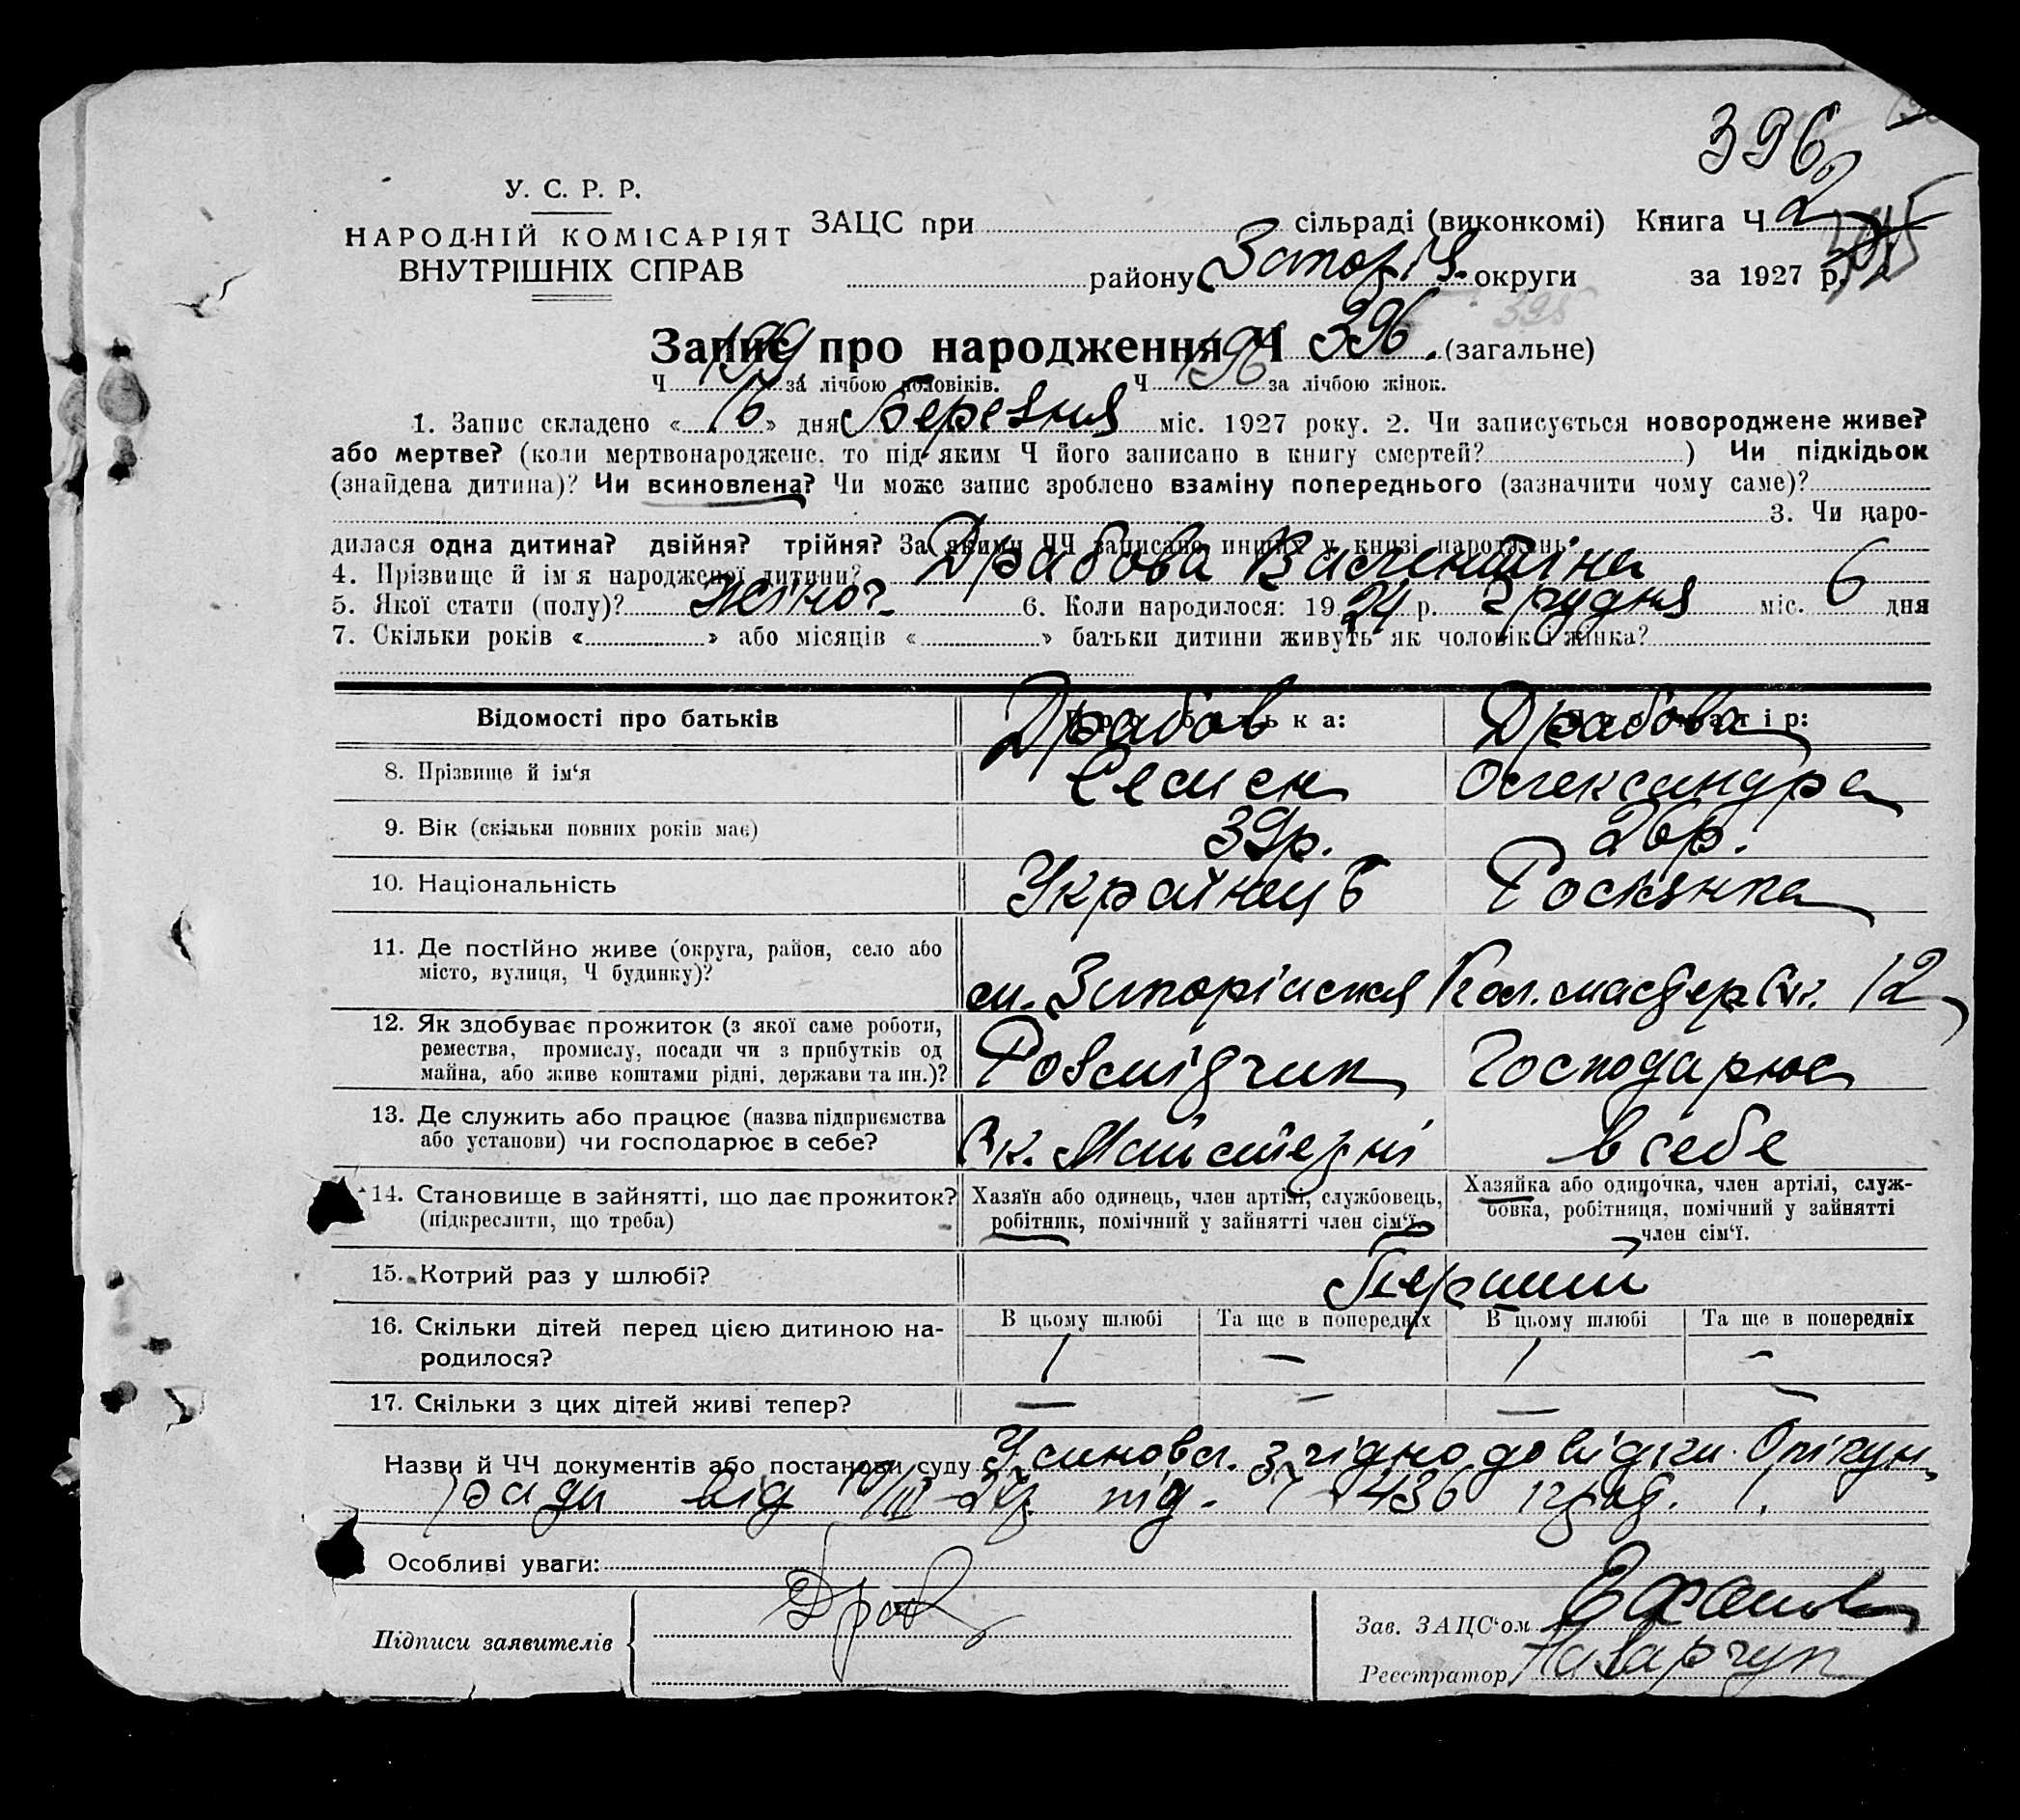 396
У. С. Р. Р.
НАРОДНІЙ КОМІСАРІЯТ
ВНУТРІШНІХ СПРАВ
ЗАЦС при сільраді (виконкомі) Книга Ч 2
району Запоріз. округи за 1927 р.
395
Запис про народження Ч 396. (загальне)
Ч 199 за лічбою половіків. Ч 196 за лічбою жінок.
1. Запис складено «16» дня Березня міс. 1927 року. 2. Чи записується новороджене живе?
або мертве? (коли мертвонароджене, то під яким Ч його записано в книгу смертей? ) Чи підкідьок
(знайдена дитина)? Чи всиновлена? Чи може запис зроблено взаміну попереднього (зазначити чому саме)?
3. Чи наро-
дилася одна дитина? двійня? трійня? За якими ЧЧ записано инших у книзі народжень
4. Прізвище й ім'я народженої дитини? Драбова Валентина
5. Якої стати (полу)? жіноч. 6. Коли народилося: 1924 р. Грудня міс. 6 дня
7. Скільки років « » або місяців « » батьки дитини живуть як чоловік і жінка?
Відомості про батьків
Про батька: Про матір:
Драбов Драбова
8. Прізвище й ім'я Семен Олександра
9. Вік (скільки повних років має) 39р. 26р.
10. Національність Українець Росіянка
11. Де постійно живе (округа, район, село або
місто, вулиця, Ч будинку)?
м. Запоріжжя Кол. 12
12. Як здобуває прожиток (з якої саме роботи,
ремества, промислу, посади чи з прибутків од
майна, або живе коштами рідні, держави та ин.)?
Розмідчик Господарює
13. Де служить або працює (назва підприємства
або установи) чи господарює в себе?
Вк. Майстерні в себе
14. Становище в зайнятті, що дає прожиток?
(підкреслити, що треба)
Хазяїн або одинець, член артілі, службовець,
робітник, помічний у зайнятті член сім'ї.
Хазяйка або одиночка, член артілі, служ-
бовка, робітниця, помічний у зайнятті
член сім'ї.
15. Котрий раз у шлюбі? Перший
16. Скільки дітей перед цією дитиною на-
родилося?
В цьому шлюбі Та ще в попередніх В цьому шлюбі Та ще в попередніх
1 — 1 —
17. Скільки з цих дітей живі тепер? — — — —
Назви й ЧЧ документів або постанови суду Усиновл. згідно довідки Опікун.
ради від 10/III-27 під. Ч 436
Особливі уваги:
Підписи заявителів Драб
Зав. ЗАЦС'ом
Реєстратор Назарчук